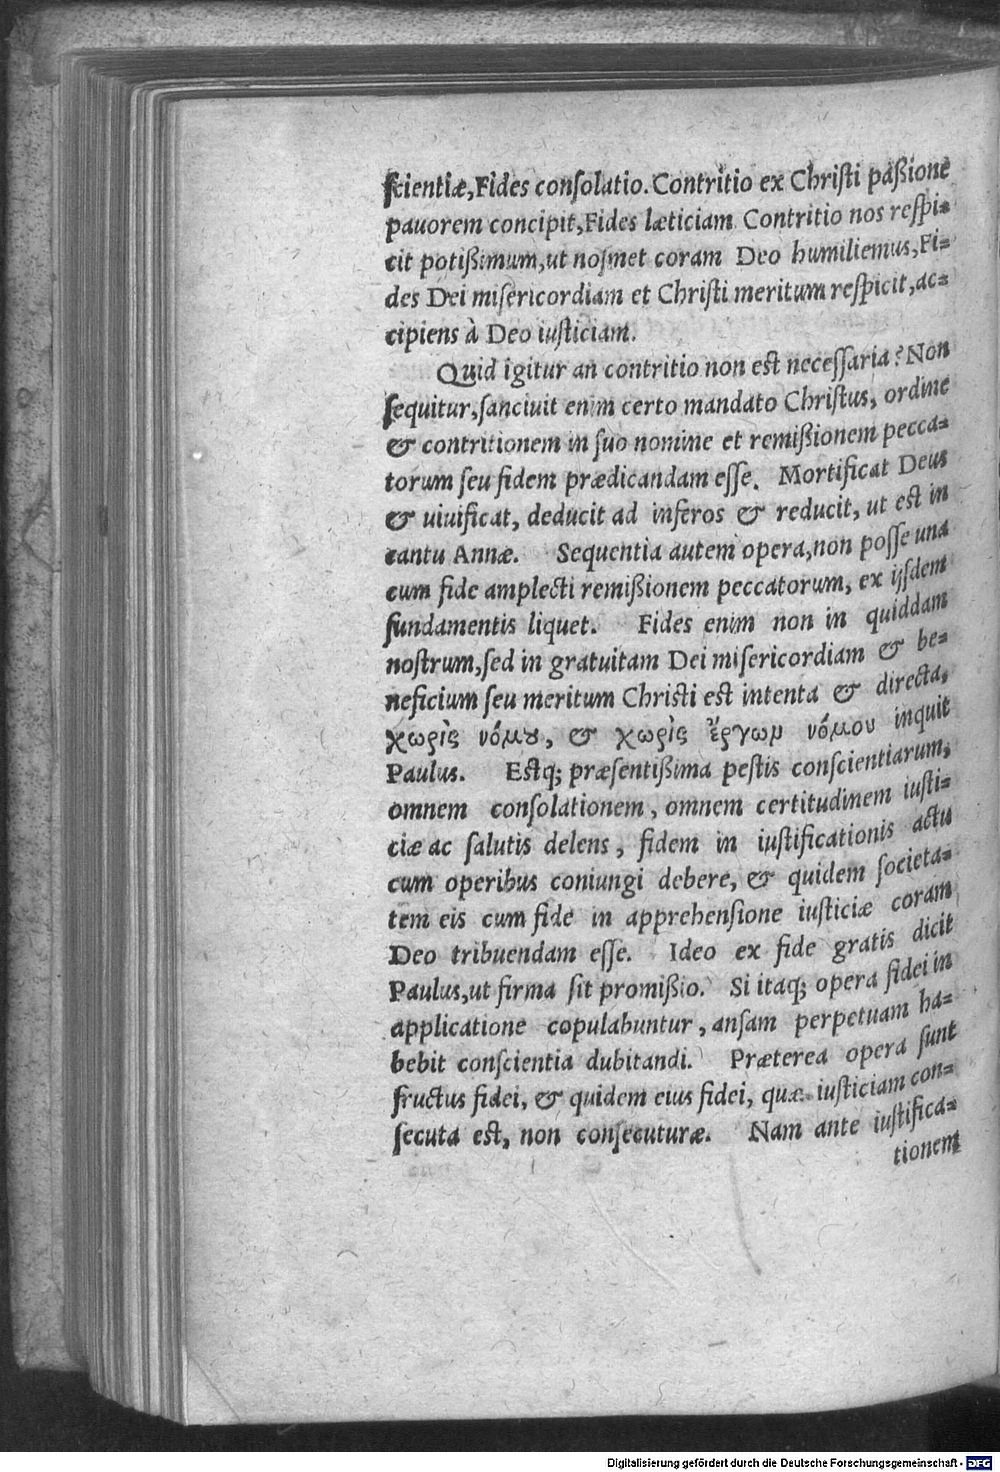 ſcientiæ, Fides conſolatio. Contritio ex Chriſti paßione
pauorem concipit, Fides læticiam Contritio nos reſpi-
cit potißimum, ut noſmet coram Deo humiliemus, Fi-
des Dei miſericordiam et Chriſti meritum reſpicit, ac-
cipiens à Deo iuſticiam.
Quid igitur an contritio non eſt neceſſaria? Non
ſequitur, ſanciuit enim certo mandato Chriſtus, ordine
& contritionem in ſuo nomine et remißionem pecca-
torum ſeu fidem prædicandam eſſe. Mortificat Deus
& uiuificat, deducit ad inferos & reducit, ut eſt in
cantu Annæ. Sequentia autem opera, non poſſe una
cum fide amplecti remißionem peccatorum, ex ijſdem
fundamentis liquet. Fides enim non in quiddam
noſtrum, ſed in gratuitam Dei miſericordiam & be-
neficium ſeu meritum Chriſti eſt intenta & directa,
χωρὶς νόμου, & χωρὶς ἔργων νόμου inquit
Paulus. Eſtq; præſentißima peſtis conſcientiarum,
omnem conſolationem, omnem certitudinem iuſti-
ciæ ac ſalutis delens, fidem in iuſtificationis actu
cum operibus coniungi debere, & quidem ſocieta-
tem eis cum fide in apprehenſione iuſticiæ coram
Deo tribuendam eſſe. Ideo ex fide gratis dicit
Paulus, ut firma ſit promißio. Si itaq; opera fidei in
applicatione copulabuntur, anſam perpetuam ha-
bebit conſcientia dubitandi. Præterea opera ſunt
fructus fidei, & quidem eius fidei, quæ iuſticiam con-
ſecuta eſt, non conſecuturæ. Nam ante iuſtifica-
tionem
Digitalisierung gefördert durch die Deutsche Forschungsgemeinschaft - DFG